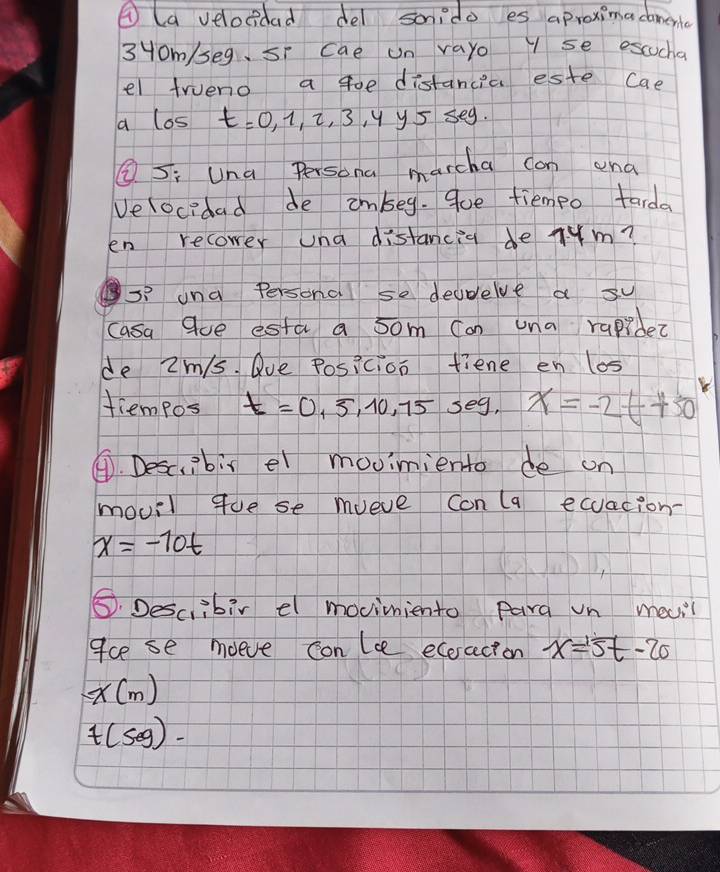 ① La velocidad del sonido es aproximadamente
340m/seg. si cae un rayo y se escucha
el trueno a que distancia este cae
a los t=0,1,2,3,4 y 5 seg.
② Si Una Persona marcha con una
velocidad de 2m/seg. que tiempo tarda
en recorrer una distancia de 14m?
③ Si una Persona se devuelve a su
casa que esta a 50m Con una rapidez
de 2m/s. Que Posición tiene en los
tiempos t=0,5,10,15 seg. x=-2t+50
④. Describir el movimiento de un
movil que se mueve con la ecuacion-
x=-10t
⑤. Describir el moviniento Para un movil
que se mueve con la ecuacion x=15t-20
x(m)
t(seg)-